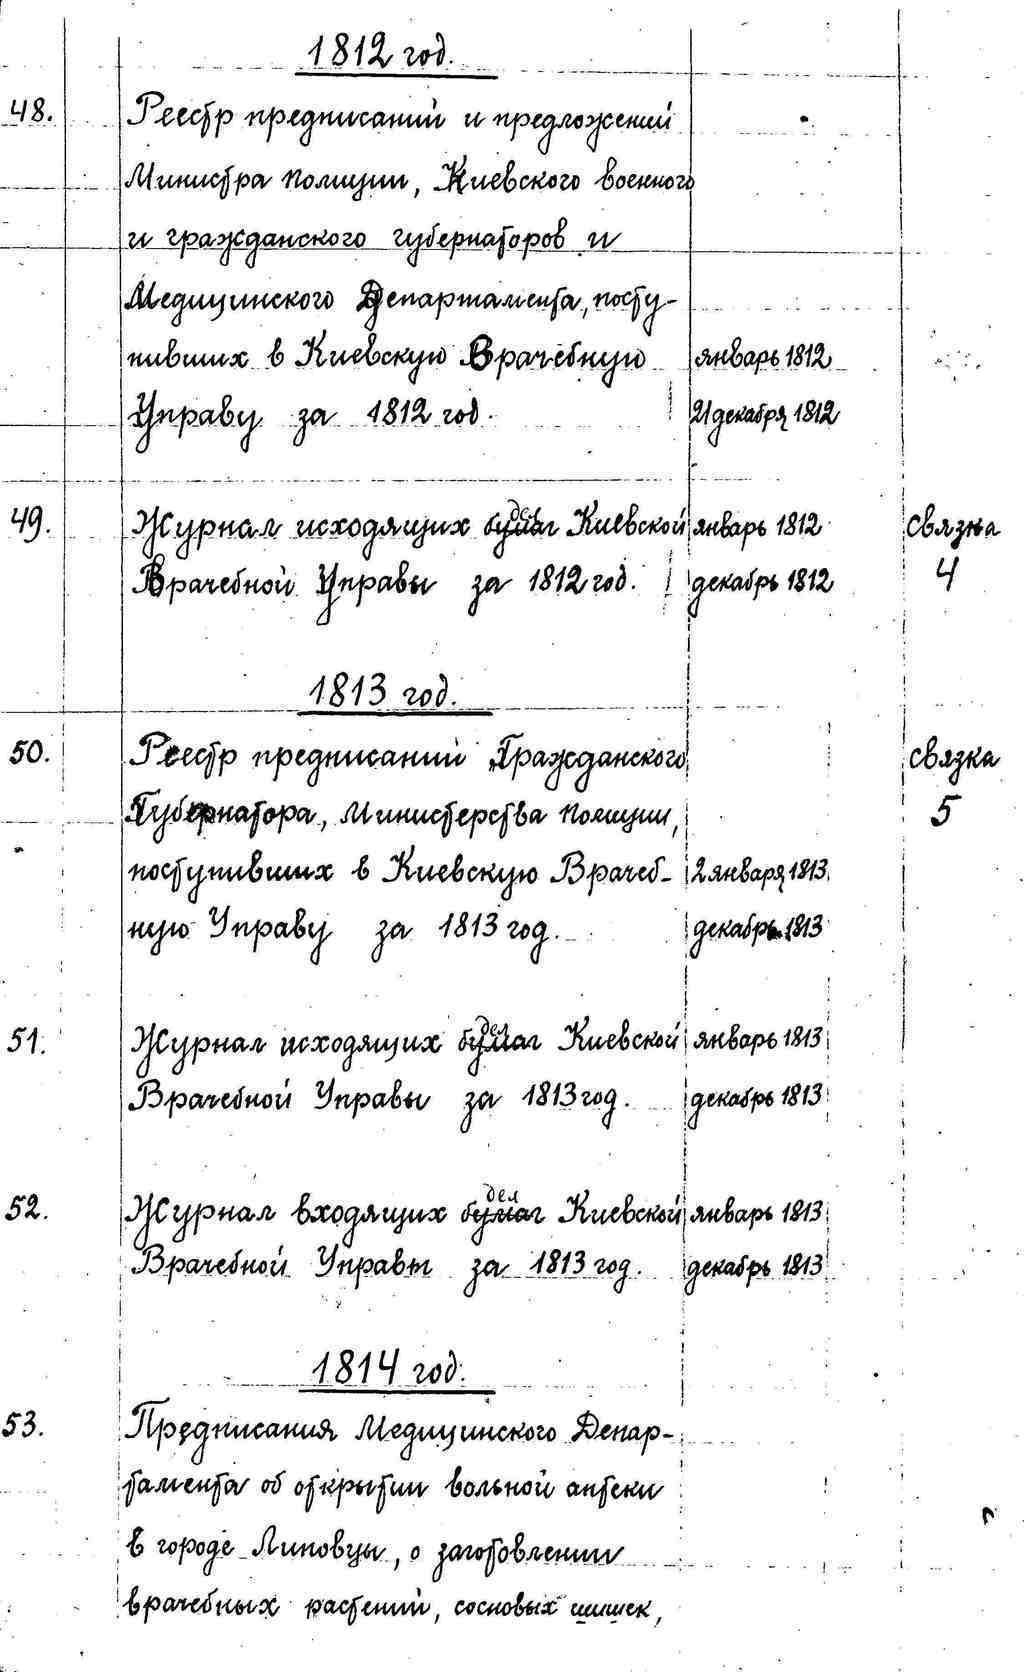 1812 год.
48. Реестр предписаний и предложений
Министра полиции, Киевского военного
и гражданского губернаторов и
Медицинского Департамента, посту-
пивших в Киевскую Врачебную январь 1812
Управу за 1812 год. 21 декабря 1812
49. Журнал исходящих бумаг дел Киевской январь 1812 связка
Врачебной Управы за 1812 год. декабрь 1812 4
1813 год.
50. Реестр предписаний Гражданского связка
Губернатора, Министерства полиции, 5
поступивших в Киевскую Врачеб- 2 января 1813
ную Управу за 1813 год. декабрь 1813
51. Журнал исходящих бумаг дел Киевской январь 1813
Врачебной Управы за 1813 год. декабрь 1813
52. Журнал входящих бумаг дел Киевской январь 1813
Врачебной Управы за 1813 год. декабрь 1813
1814 год.
53. Предписания Медицинского Депар-
тамента об открытии вольной аптеки
в городе Липовцы, о заготовлении
врачебных растений, сосновых шишек,